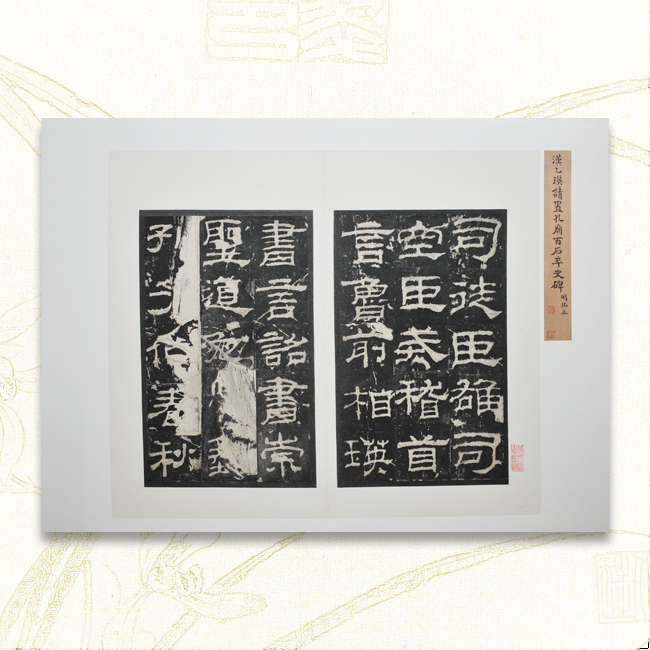 漢乙瑛請置孔廟百石卒史碑 明拓本
司徒臣雄司
空臣戒稽首
言魯前相瑛
書言詔書崇
聖道勉藝
孔子作春秋